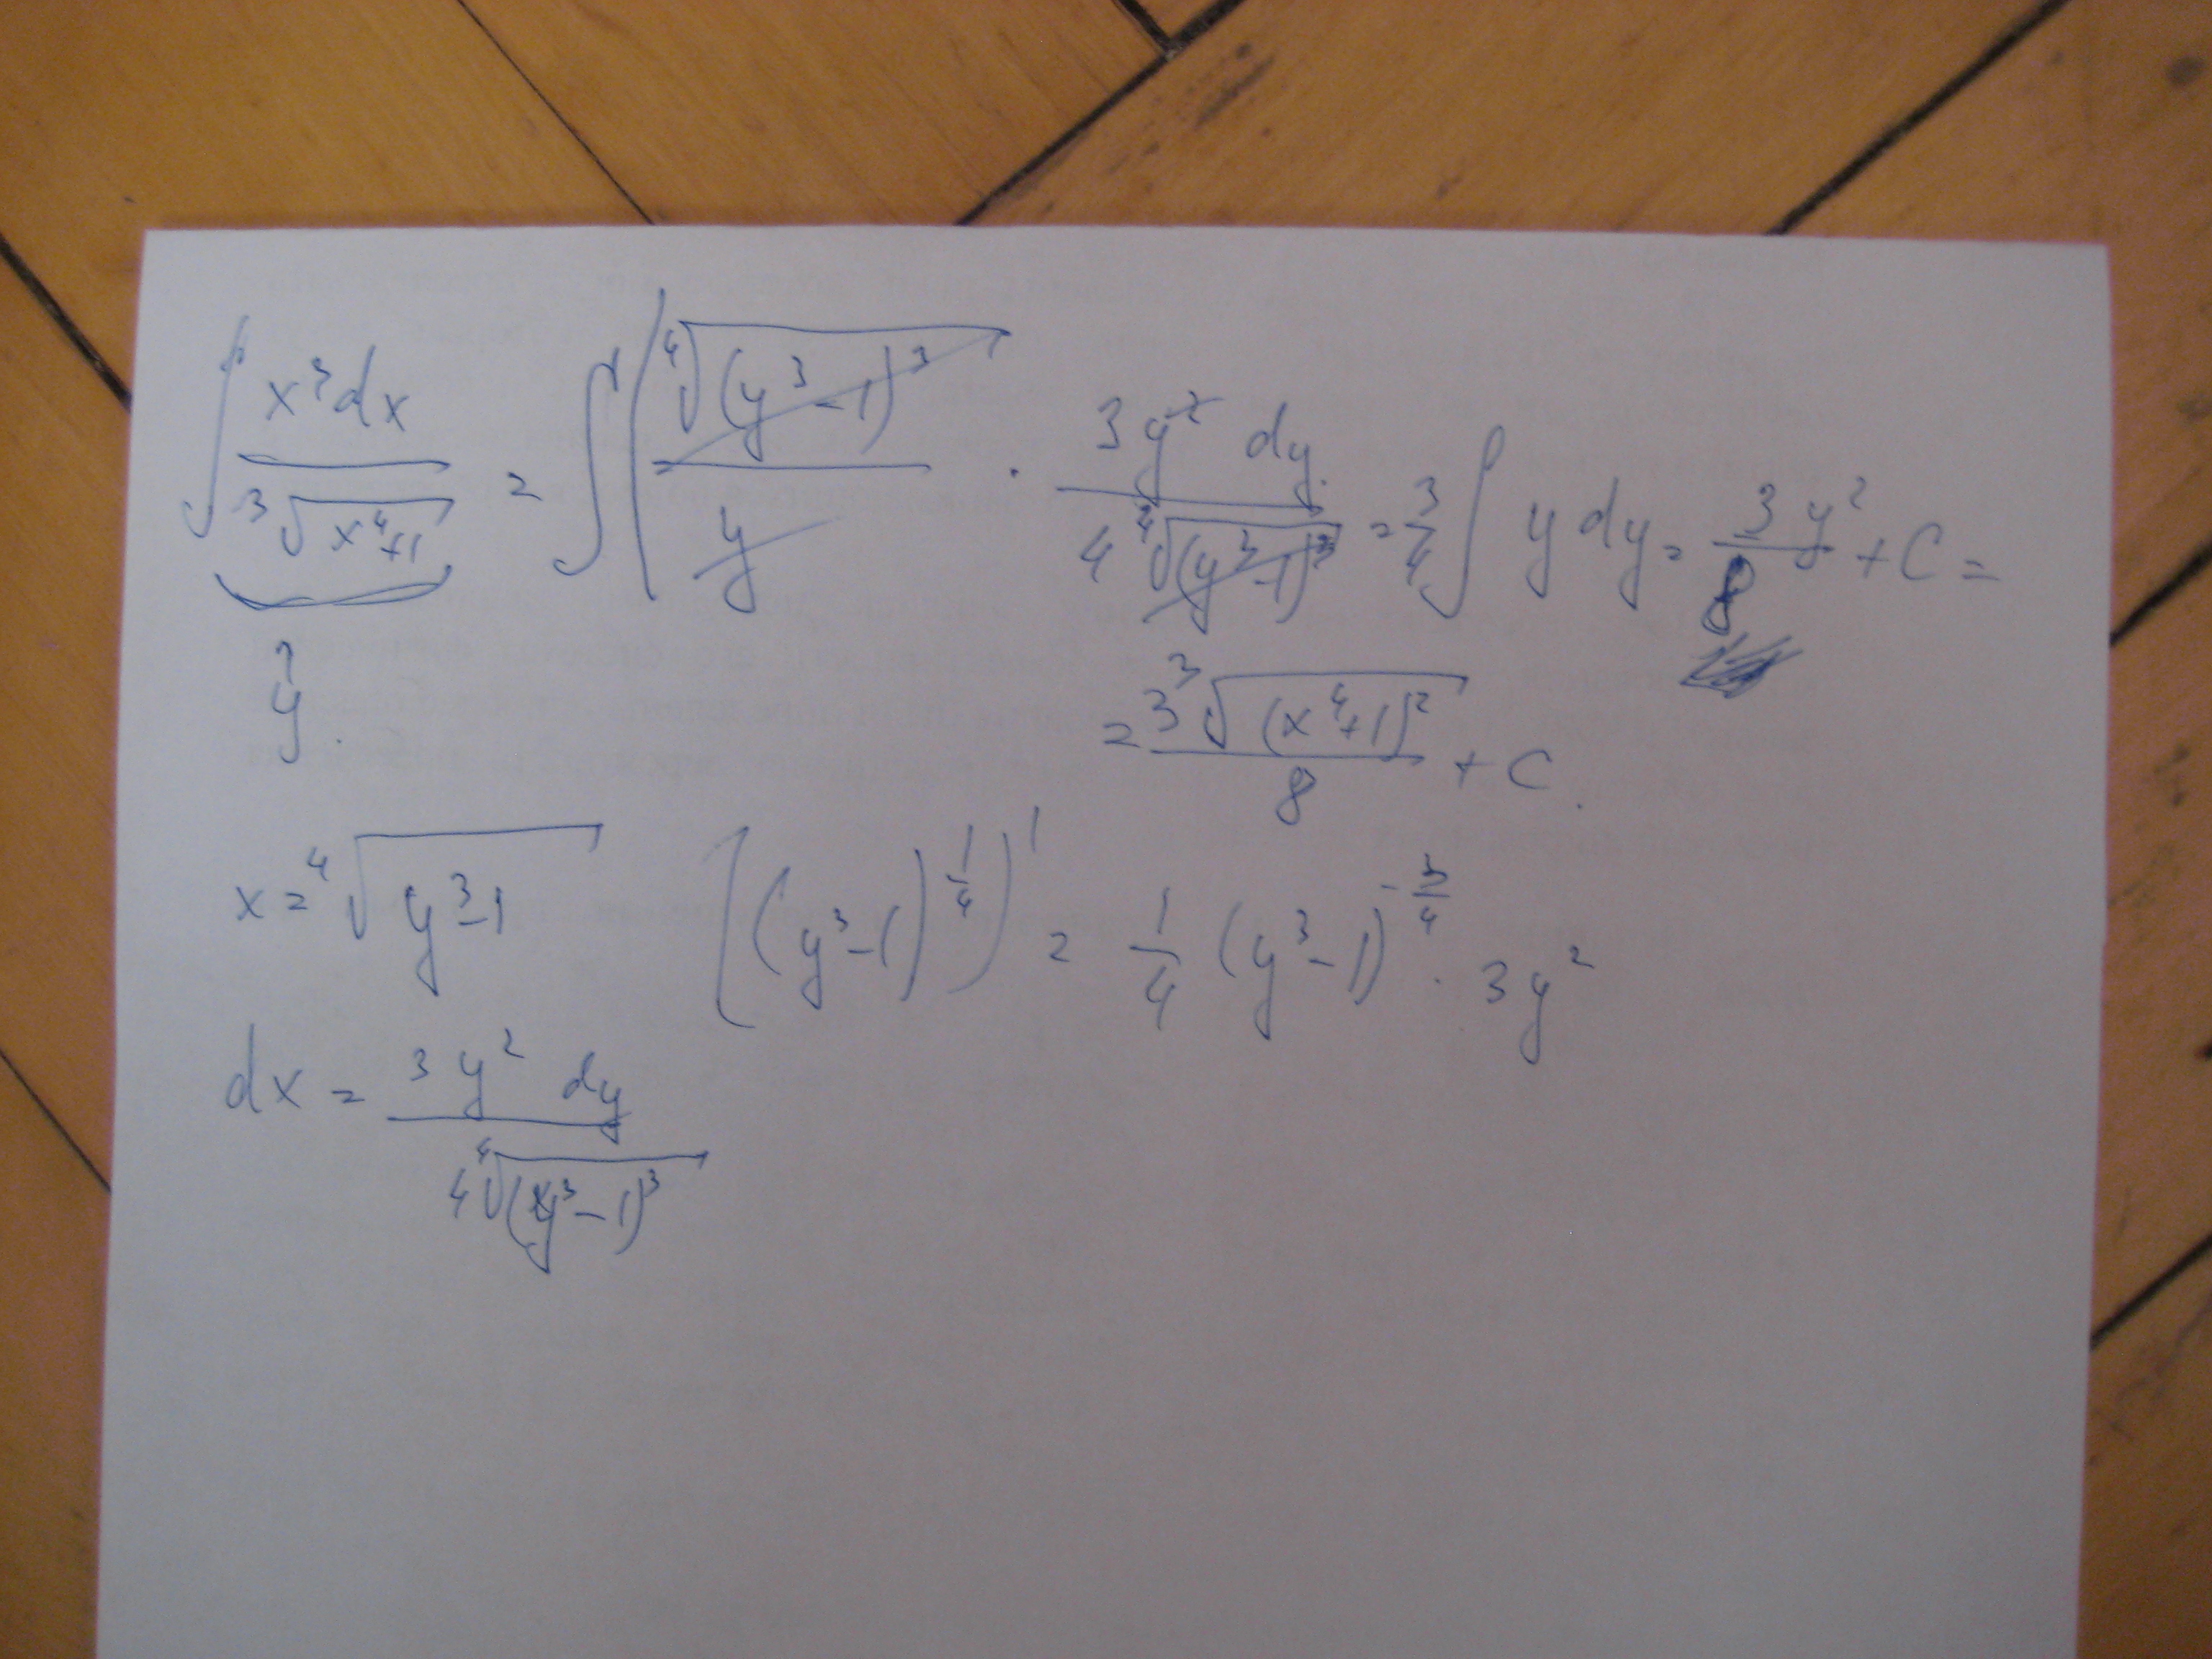 ∫ x³dx / ³√(x⁴+1) = ∫ ( ⁴√((y³-1)³) / y · 3y² dy / 4 ⁴√((y³-1)³) = 3/4 ∫ y dy = 3y²/8 + C =
y = 3 ³√((x⁴+1)²) / 8 + C.
x = ⁴√(y³-1) ((y³-1)^(1/4))' = 1/4 (y³-1)^(-3/4) · 3y²
dx = 3y² dy / 4 ⁴√((y³-1)³)